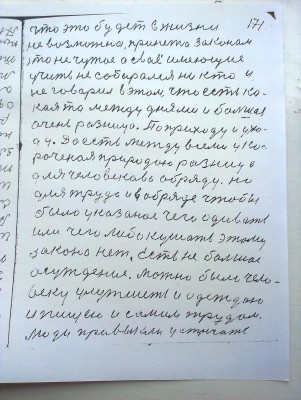 171
что это будет в жизни
невозможна, принета законам
то не чутое а
учить не собирался ни кто и
не говорил в этом, что есть ка-
кая то между днями и большая
очень разница. По приходу и ухо-
ду. Да есть между всеми
природою разница
для человека в обряду. но
для труда и в обряде чтобы
было указаное чего одивать
или чего либо кушать этому
закона нет. Есть не большое
осуждение. можно было чело-
веку улутшить и одеждою
и пищею и самим трудом.
Люди привыкли устричать